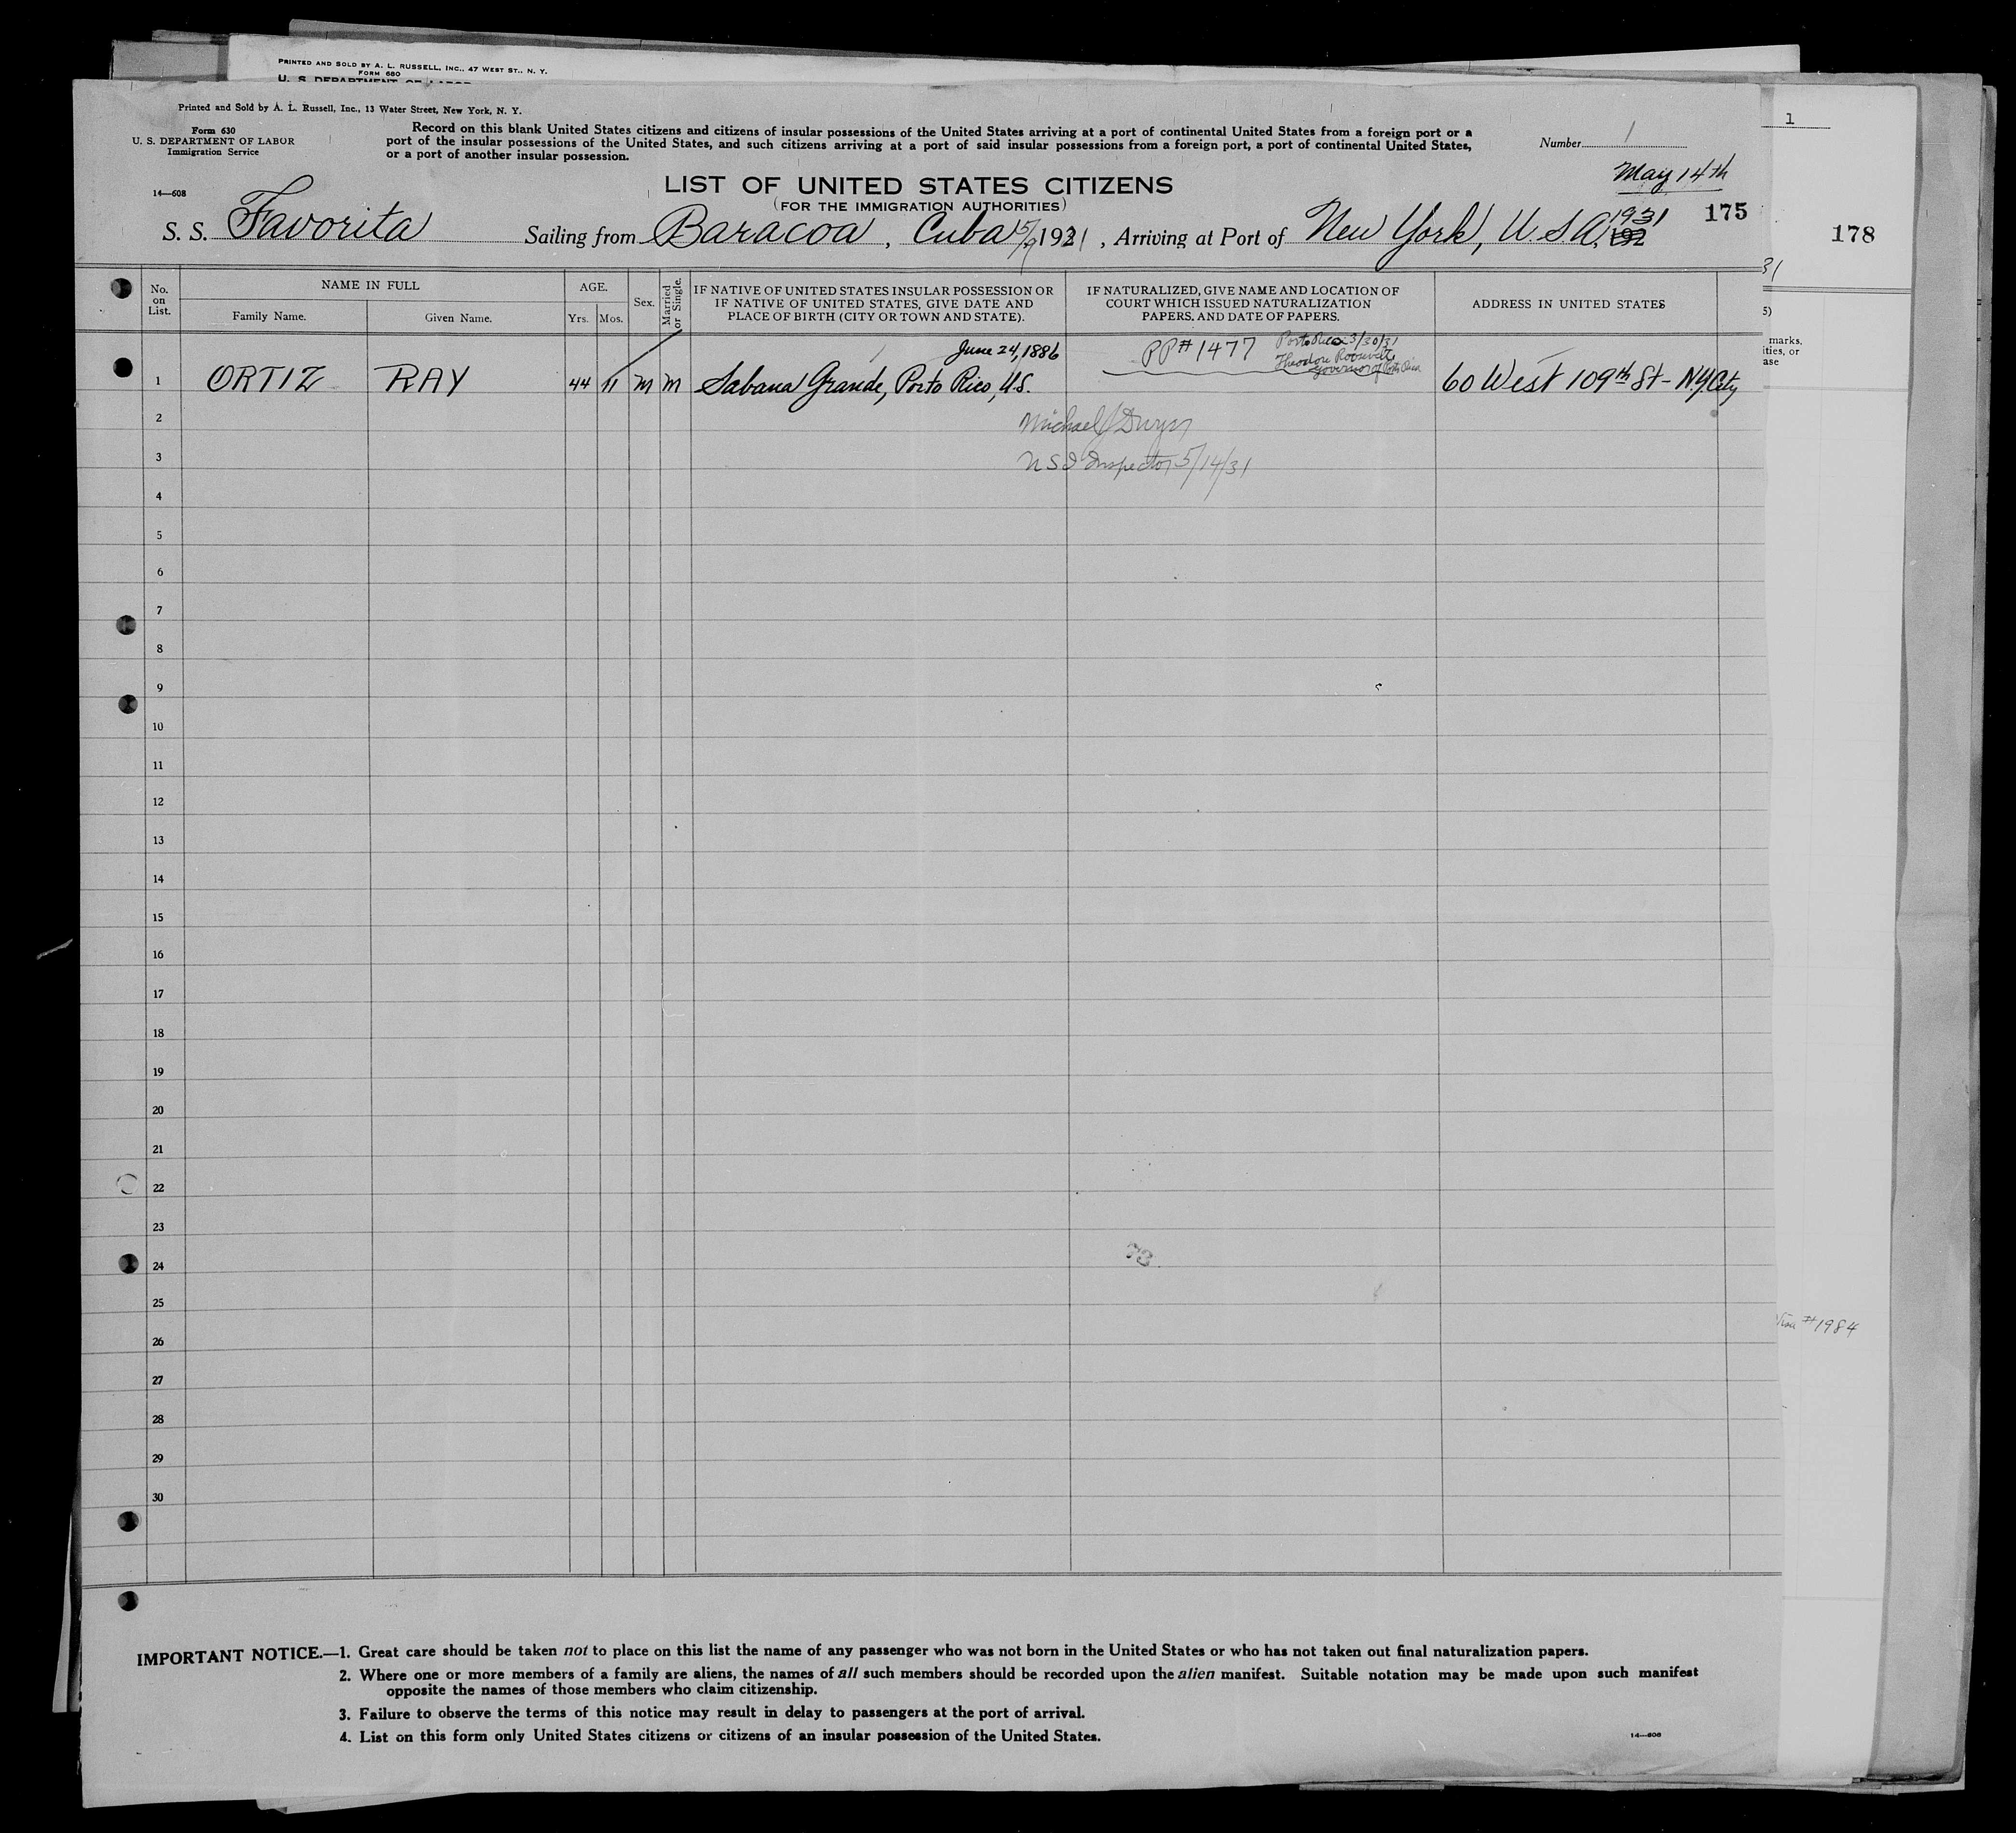 PRINTED AND SOLD BY A. L. RUSSELL, INC., 47 WEST ST., N. Y.
FORM 680
U. S. DEPARTMENT OF LABOR
Printed and Sold by A. L. Russell, Inc., 13 Water Street, New York, N. Y.
Form 630
U. S. DEPARTMENT OF LABOR
Immigration Service
14—608
Record on this blank United States citizens and citizens of insular possessions of the United States arriving at a port of continental United States from a foreign port or a
port of the insular possessions of the United States, and such citizens arriving at a port of said insular possessions from a foreign port, a port of continental United States,
or a port of another insular possession.
Number 1
1
LIST OF UNITED STATES CITIZENS
(FOR THE IMMIGRATION AUTHORITIES)
May 14th
S. S. Favorita Sailing from Baracoa, Cuba 5/9 1931, Arriving at Port of New York, U. S. A. 1931
192
175
178
31
No. on List.
NAME IN FULL
Family Name.
Given Name.
AGE.
Yrs.
Mos.
Sex.
Married or Single.
IF NATIVE OF UNITED STATES INSULAR POSSESSION OR
IF NATIVE OF UNITED STATES, GIVE DATE AND
PLACE OF BIRTH (CITY OR TOWN AND STATE).
IF NATURALIZED, GIVE NAME AND LOCATION OF
COURT WHICH ISSUED NATURALIZATION
PAPERS, AND DATE OF PAPERS.
ADDRESS IN UNITED STATES
5)
marks,
ities, or
ase
June 24, 1886
PP# 1477
Porto Rico 3/30/31
Theodore Roosevelt
Governor of Porto Rico
1 ORTIZ RAY 44 11 M M Sabana Grande, Porto Rico, U.S. 60 West 109th St - N.Y. City
2
Michael J Dwyer
3
U S I Inspector 5/14/31
4
5
6
7
8
9
10
11
12
13
14
15
16
17
18
19
20
21
22
23
24
25
26
27
28
29
30
73
Visa #1984
IMPORTANT NOTICE.—1. Great care should be taken not to place on this list the name of any passenger who was not born in the United States or who has not taken out final naturalization papers.
2. Where one or more members of a family are aliens, the names of all such members should be recorded upon the alien manifest. Suitable notation may be made upon such manifest
opposite the names of those members who claim citizenship.
3. Failure to observe the terms of this notice may result in delay to passengers at the port of arrival.
4. List on this form only United States citizens or citizens of an insular possession of the United States.
14—608